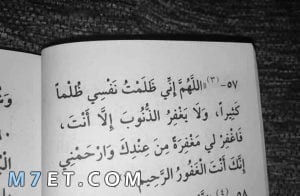 ٥٧-(٣) «اللَّهُمَّ إِنِّي ظَلَمْتُ نَفْسِي ظُلْماً
كَثِيراً، وَلَا يَغْفِرُ الذُّنُوبَ إِلَّا أَنْتَ،
فَاغْفِرْ لِي مَغْفِرَةً مِنْ عِنْدِكَ وَارْحَمْنِي
إِنَّكَ أَنْتَ الْغَفُورُ الرَّحِيمُ
٥٨ (٤)
M7ET.COM